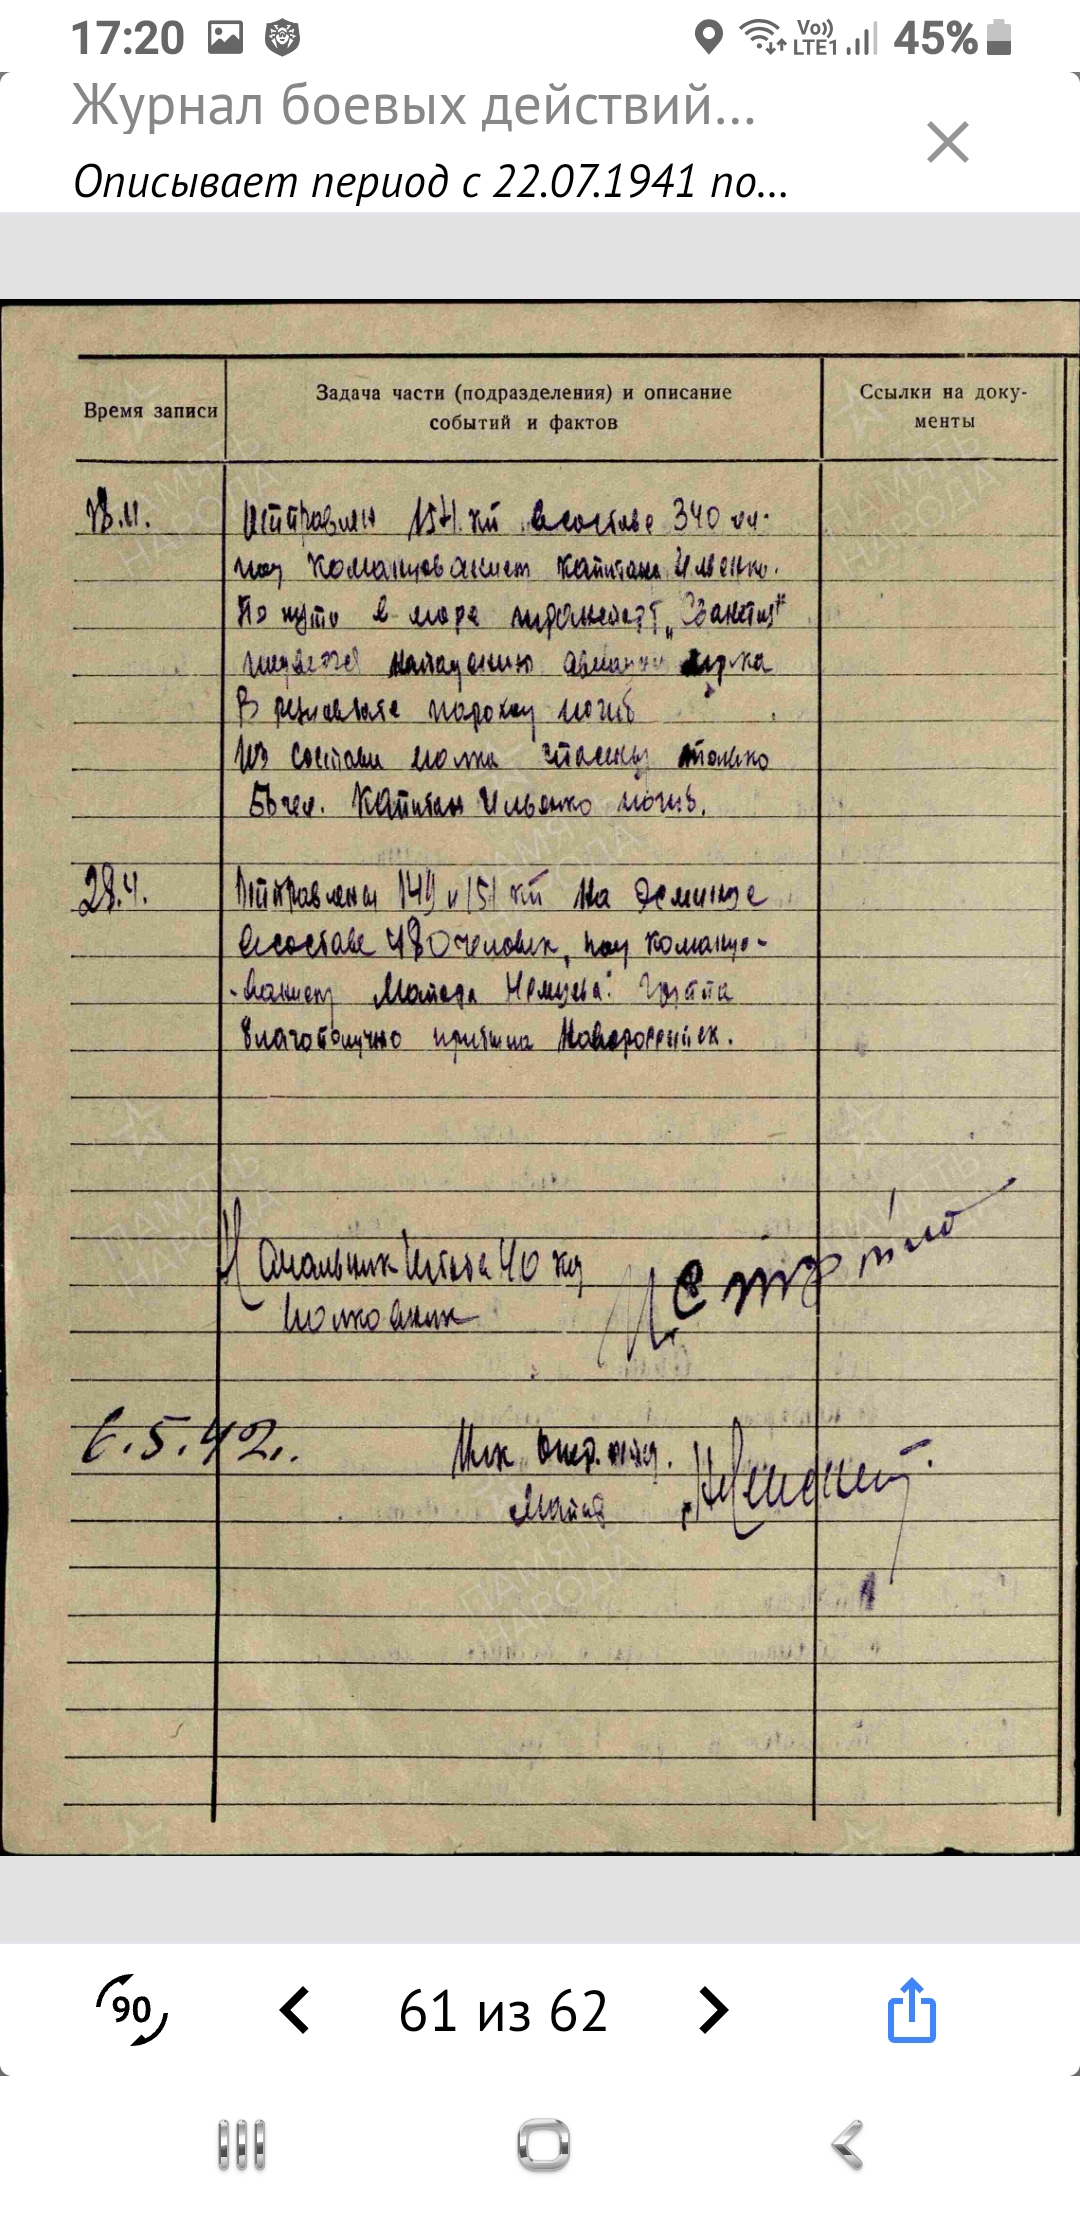 17:20
Vo)) LTE1
45%
Журнал боевых действий...
Описывает период с 22.07.1941 по...
Время записи
Задача части (подразделения) и описание
событий и фактов
Ссылки на доку-
менты
Отправлен 154 кп в составе 340 чл.
под командованием капитана Ильенко.
По пути в море "Сванетия"
нападению авиации
В результате пароход погиб
Из состава полка спасены только
56 чел. Капитан Ильенко погиб.
28.4.
Отправлены 149 и 151 кп на эсминце
в составе 480 человек, под командо-
-ванием Майора Немцева. Группа
благополучно прибыла Новороссийск.
Начальник штаба 40 кд
Полковник
6.5.42.
Нач. опер. отд.
Майор
ПАМЯТЬ
НАРОДА
90
61 из 62